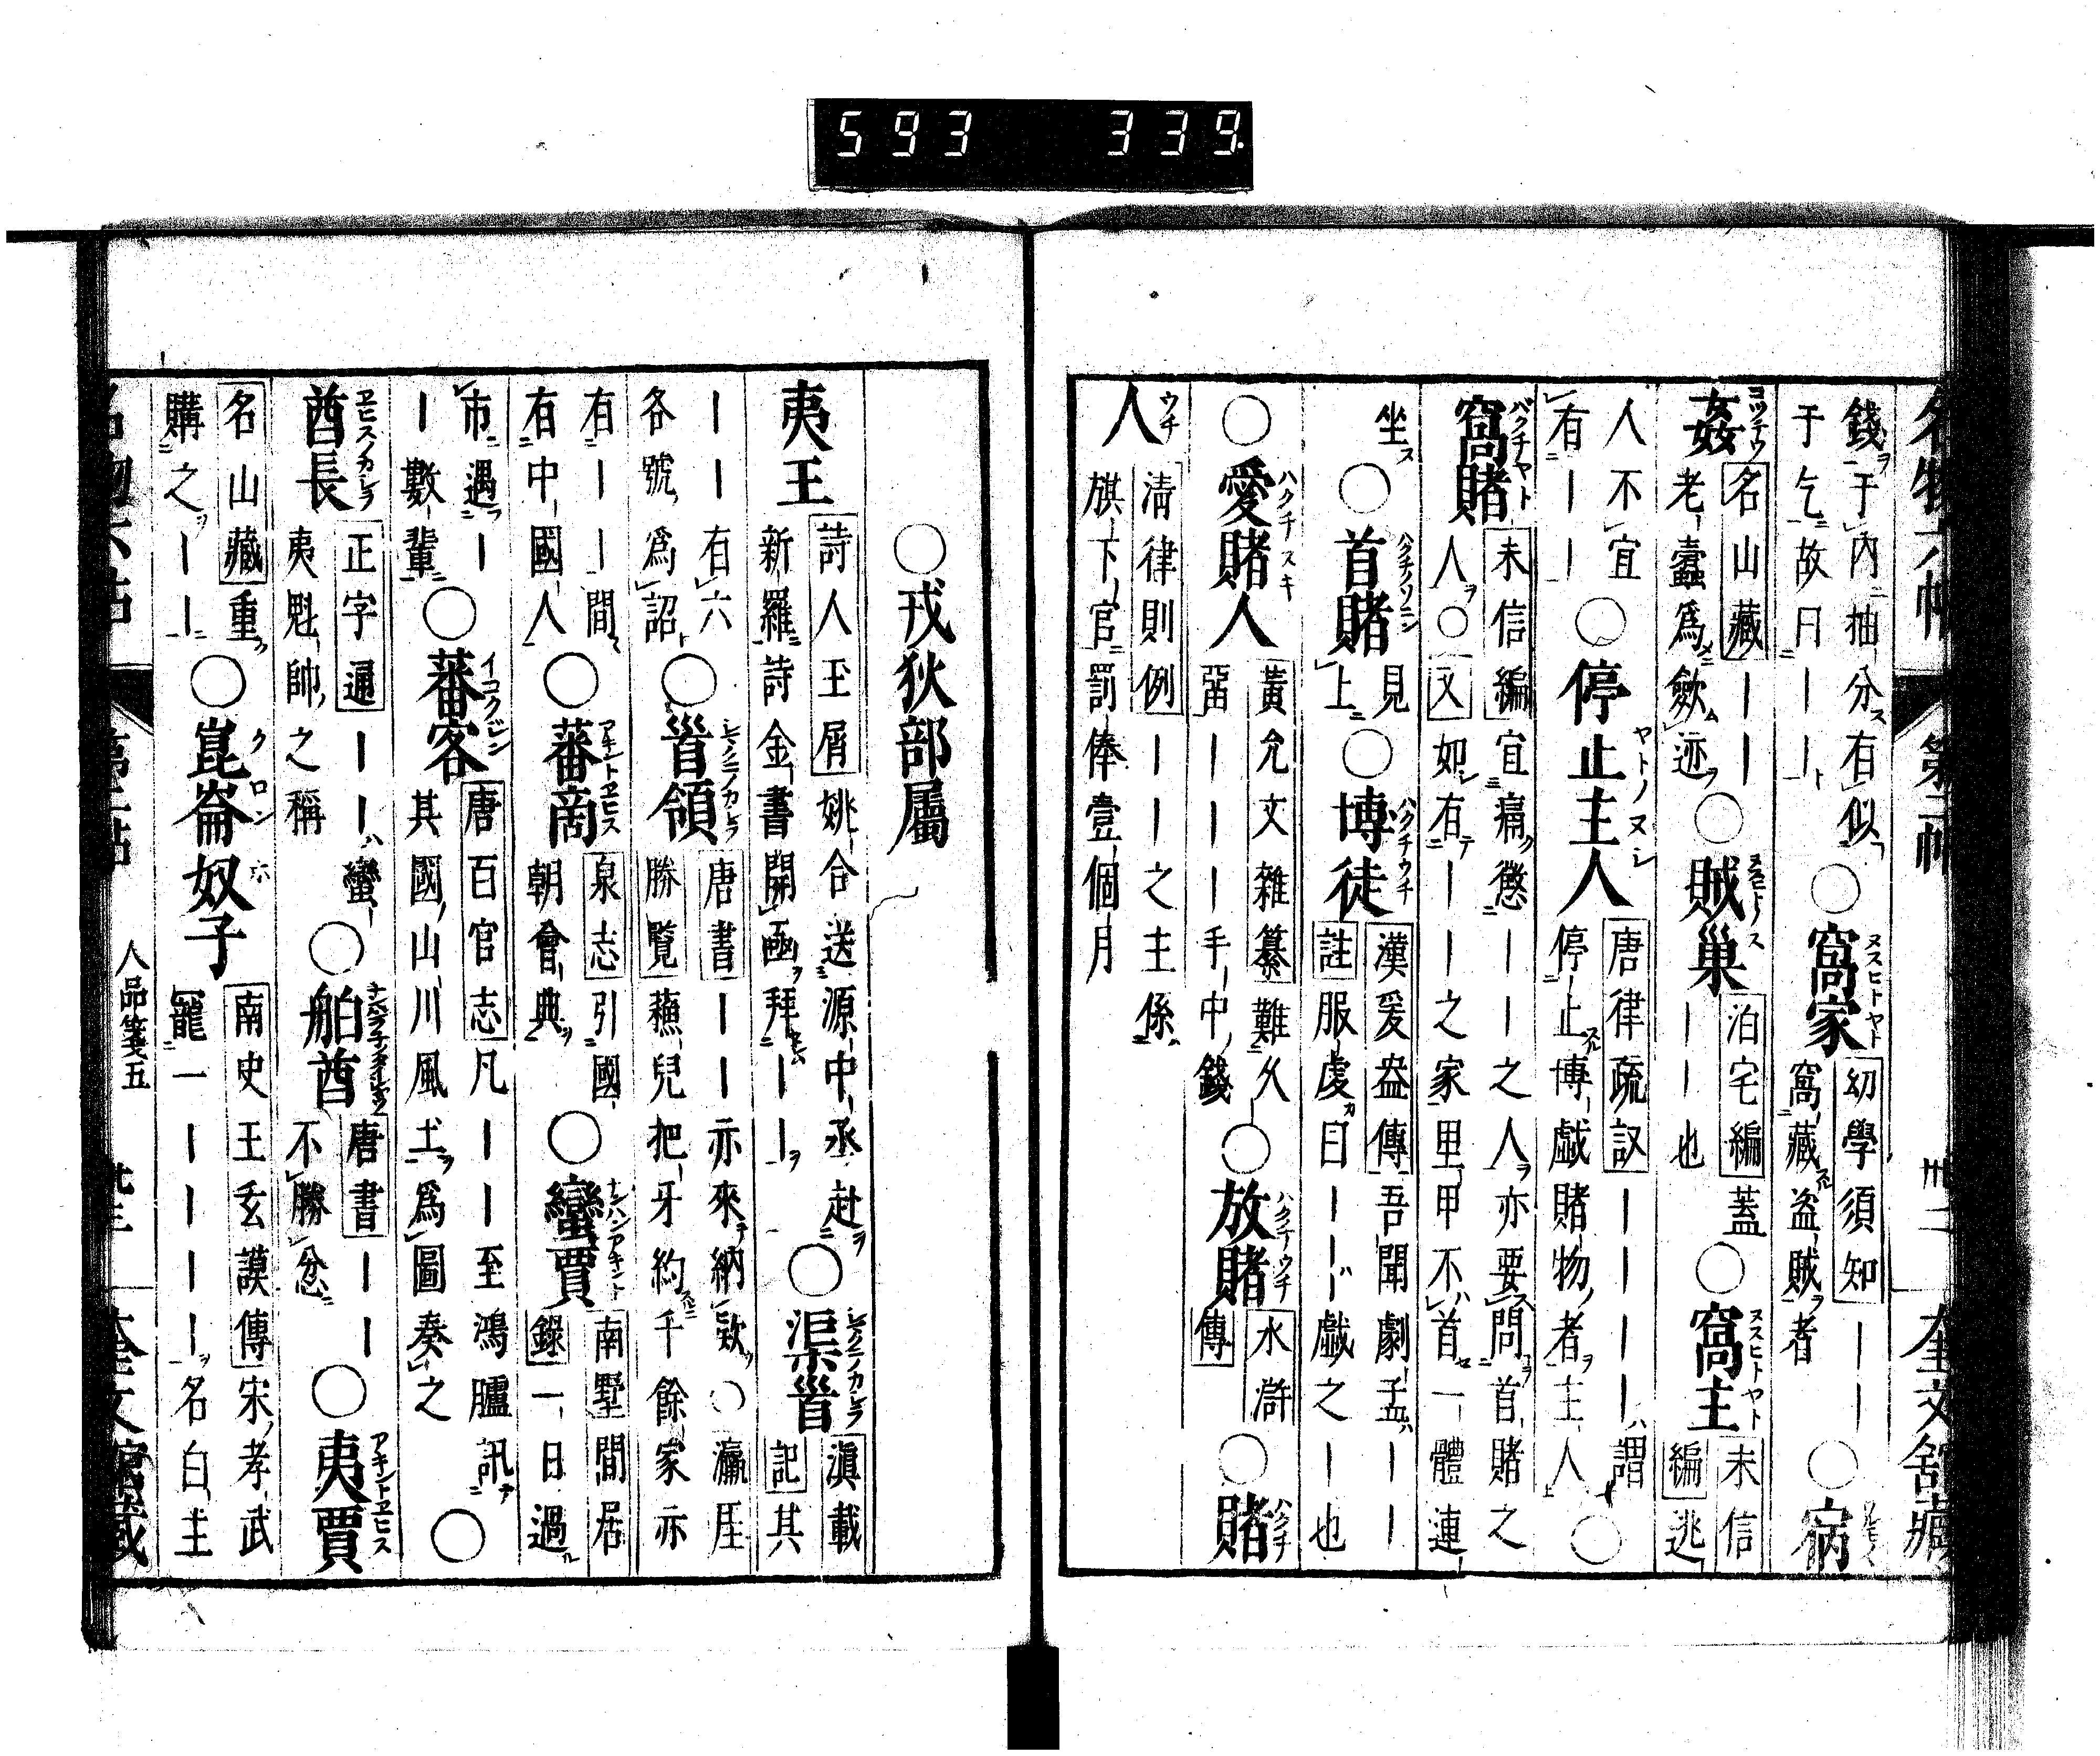 名物六帖 第二帖 卅二 奎文舘藏
錢于內抽分有似
于乞故曰——
○窩家
幼學須知——
窩藏盜賊者
○窩
姦
名山藏——
老蠹爲歛迹
○賊巢
泊宅編蓋
——也
○窩主
未信
編逃
人不宜
有——
○停止主人
唐律疏議————謂
停止博戲賭物者主人
○
窩賭
未信編宜痛懲——之人亦要問首賭之
人○又如有——之家里甲不首一體連
坐
○首賭
見
上
○博徒
漢爰盎傳吾聞劇孟——
註服虔曰——戲之—也
○愛賭人
黃允文雜纂難久
畱———手中錢
○放賭
水滸
傳
○賭
人
清律則例——之主係
旗下官罰俸壹個月
○戎狄部屬
夷王
詩人玉屑姚合送源中丞赴
新羅詩金書開函拜——
○渠酋
滇載
記其
——有六
各號爲詔
○酋領
唐書——亦來納欵○瀛厓
勝覧蘓兒把牙約千餘家亦
有——間
有中國人
○蕃商
泉志引國
朝會典
○蠻賈
南墅間居
錄一日過
市遇—
—數輩
○蕃客
唐百官志凡——至鴻臚訊
其國山川風土爲圖奏之
○
酋長
正字通——蠻
夷魁帥之稱
○舶酋
唐書——
不勝忿
○夷賈
名山藏重
購之——
○崑崙奴子
南史王玄謨傳宋孝武
寵一————名白主
人品箋五
593 339